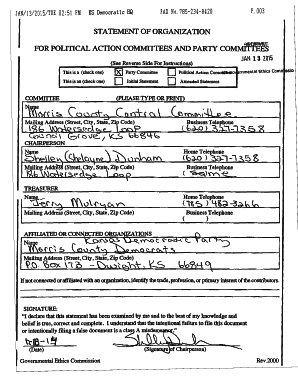 JAN/13/2015/TUE 02:51 PM KS Democratic HQ FAX No. 785-234-8420 P. 003
STATEMENT OF ORGANIZATION
FOR POLITICAL ACTION COMMITTEES AND PARTY COMMITTEES
JAN 13 2015
(See Reverse Side For Instructions)
This is a (check one) X Party Committee Political Action Committee
Governmental Ethics Commission
This is an (check one) Initial Statement Amended Statement
COMMITTEE (PLEASE TYPE OR PRINT)
Name
Morris County Central Committee
Mailing Address (Street, City, State, Zip Code) Business Telephone
186 Watersedge Loop (620) 327-7358
Council Grove, KS 66846
CHAIRPERSON
Name Home Telephone
Shelley (Shelayne) Dunham (620) 327-7358
Mailing Address (Street, City, State, Zip Code) Business Telephone
186 Watersedge Loop (same)
TREASURER
Name Home Telephone
Jerry Mulryan (785) 482-3266
Mailing Address (Street, City, State, Zip Code) Business Telephone
AFFILIATED OR CONNECTED ORGANIZATIONS
Name Kansas Democratic Party
Morris County Democrats
Mailing Address (Street, City, State, Zip Code)
P.O. Box 178 - Dwight, KS 66849
If not connected or affiliated with an organization, identify the trade, profession, or primary interest of the contributors.
SIGNATURE:
"I declare that this statement has been examined by me and to the best of my knowledge and
belief is true, correct and complete. I understand that the intentional failure to file this document
or intentionally filing a false document is a class A misdemeanor."
(Date) (Signature of Chairperson)
Governmental Ethics Commission Rev.2000